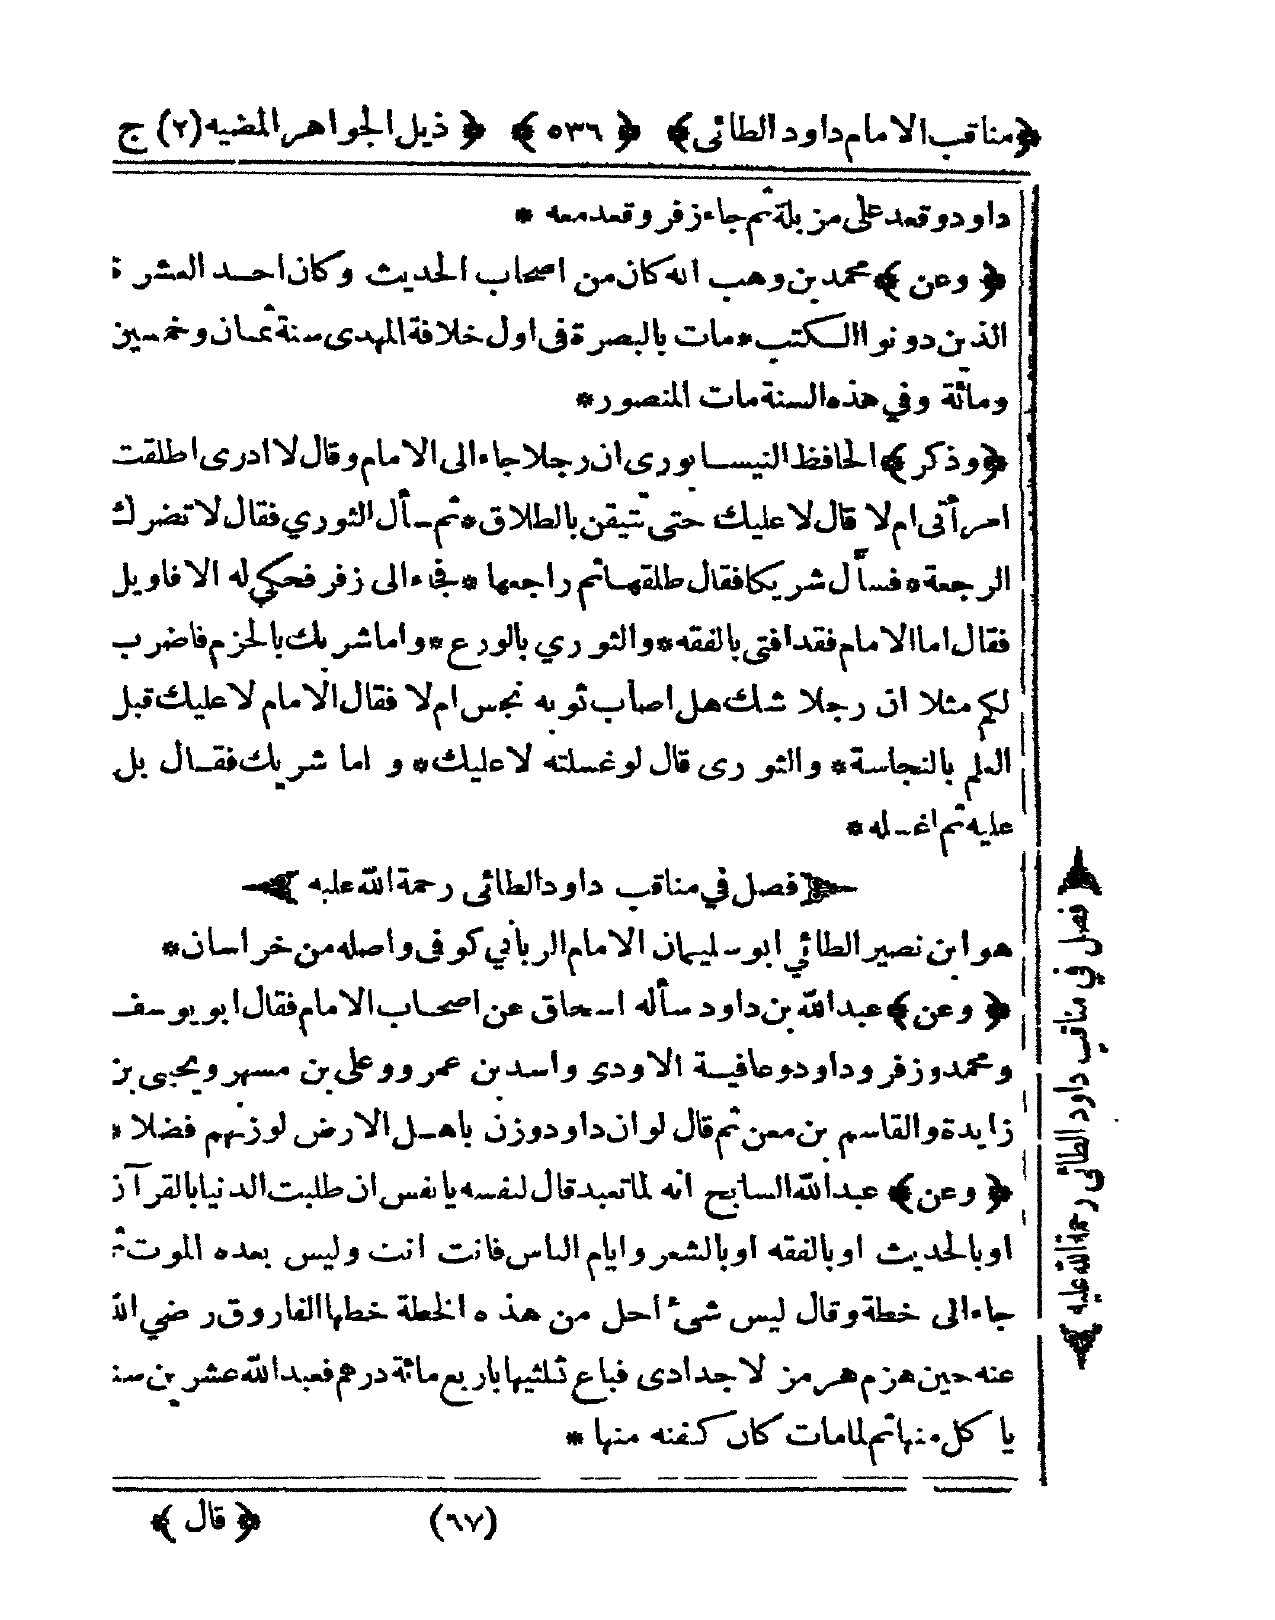 ﴿مناقب الامام داود الطائی﴾ ﴿ ٥٣٦ ﴾ ﴿ ذيل الجواهر المضيه (٢) ج
داود وقعد على مزبلة ثم جاء زفر وقعد معه *
﴿ وعن ﴾ محمد بن وهب انه كان من اصحاب الحديث وكان احد العشرة
الذين دونوا الكتب * مات بالبصرة فى اول خلافة المهدى سنة ثمان وخمسين
ومائة وفي هذه السنة مات المنصور *
﴿وذكر﴾ الحافظ النيسابورى ان رجلا جاء الى الامام وقال لا ادرى اطلقت
امرأتى ام لا قال لا عليك حتى تتيقن بالطلاق * ثم سأل الثوري فقال لا تضرك
الرجعة * فسأل شريكا فقال طلقها ثم راجعها * فجاء الى زفر فحكي له الاقاويل
فقال اما الامام فقد افتى بالفقه * والثوري بالورع * واما شريك بالحزم فاضرب
لكم مثلا ان رجلا شك هل اصاب ثوبه نجس ام لا فقال الامام لا عليك قبل
العلم بالنجاسة * والثورى قال لو غسلته لا عليك * واما شريك فقال بل
عليه ثم اغسله *
﴿فصل في مناقب داود الطائى رحمة الله عليه﴾
هو ابن نصير الطائي ابو سليمان الامام الربانى كوفى واصله من خراسان *
﴿ وعن ﴾ عبد الله بن داود سأله اسحاق عن اصحاب الامام فقال ابو يوسف
ومحمد وزفر وداود وعافية الاودى واسد بن عمرو وعلى بن مسهر ويحيى بن
زايدة والقاسم بن معن ثم قال لو ان داود وزن باهل الارض لوزنهم فضلا *
﴿ وعن ﴾ عبد الله السايح انه لما تعبد قال لنفسه يا نفس ان طلبت الدنيا بالقرآن
او بالحديث او بالفقه او بالشعر وايام الناس فانت انت وليس بعده الموت ثم
جاء الى خطة وقال ليس شئ احل من هذه الخطة خطها الفاروق رضي الله
عنه حين هزم هرمز لا جدادى فباع ثلثيها باربع مائة درهم فعبد الله عشرين سنة
يا كل منها ثم لما مات كان كفنه منها *
﴿ فصل في مناقب داود الطائى رحمة الله عليه ﴾
(٦٧) ﴿ قال ﴾